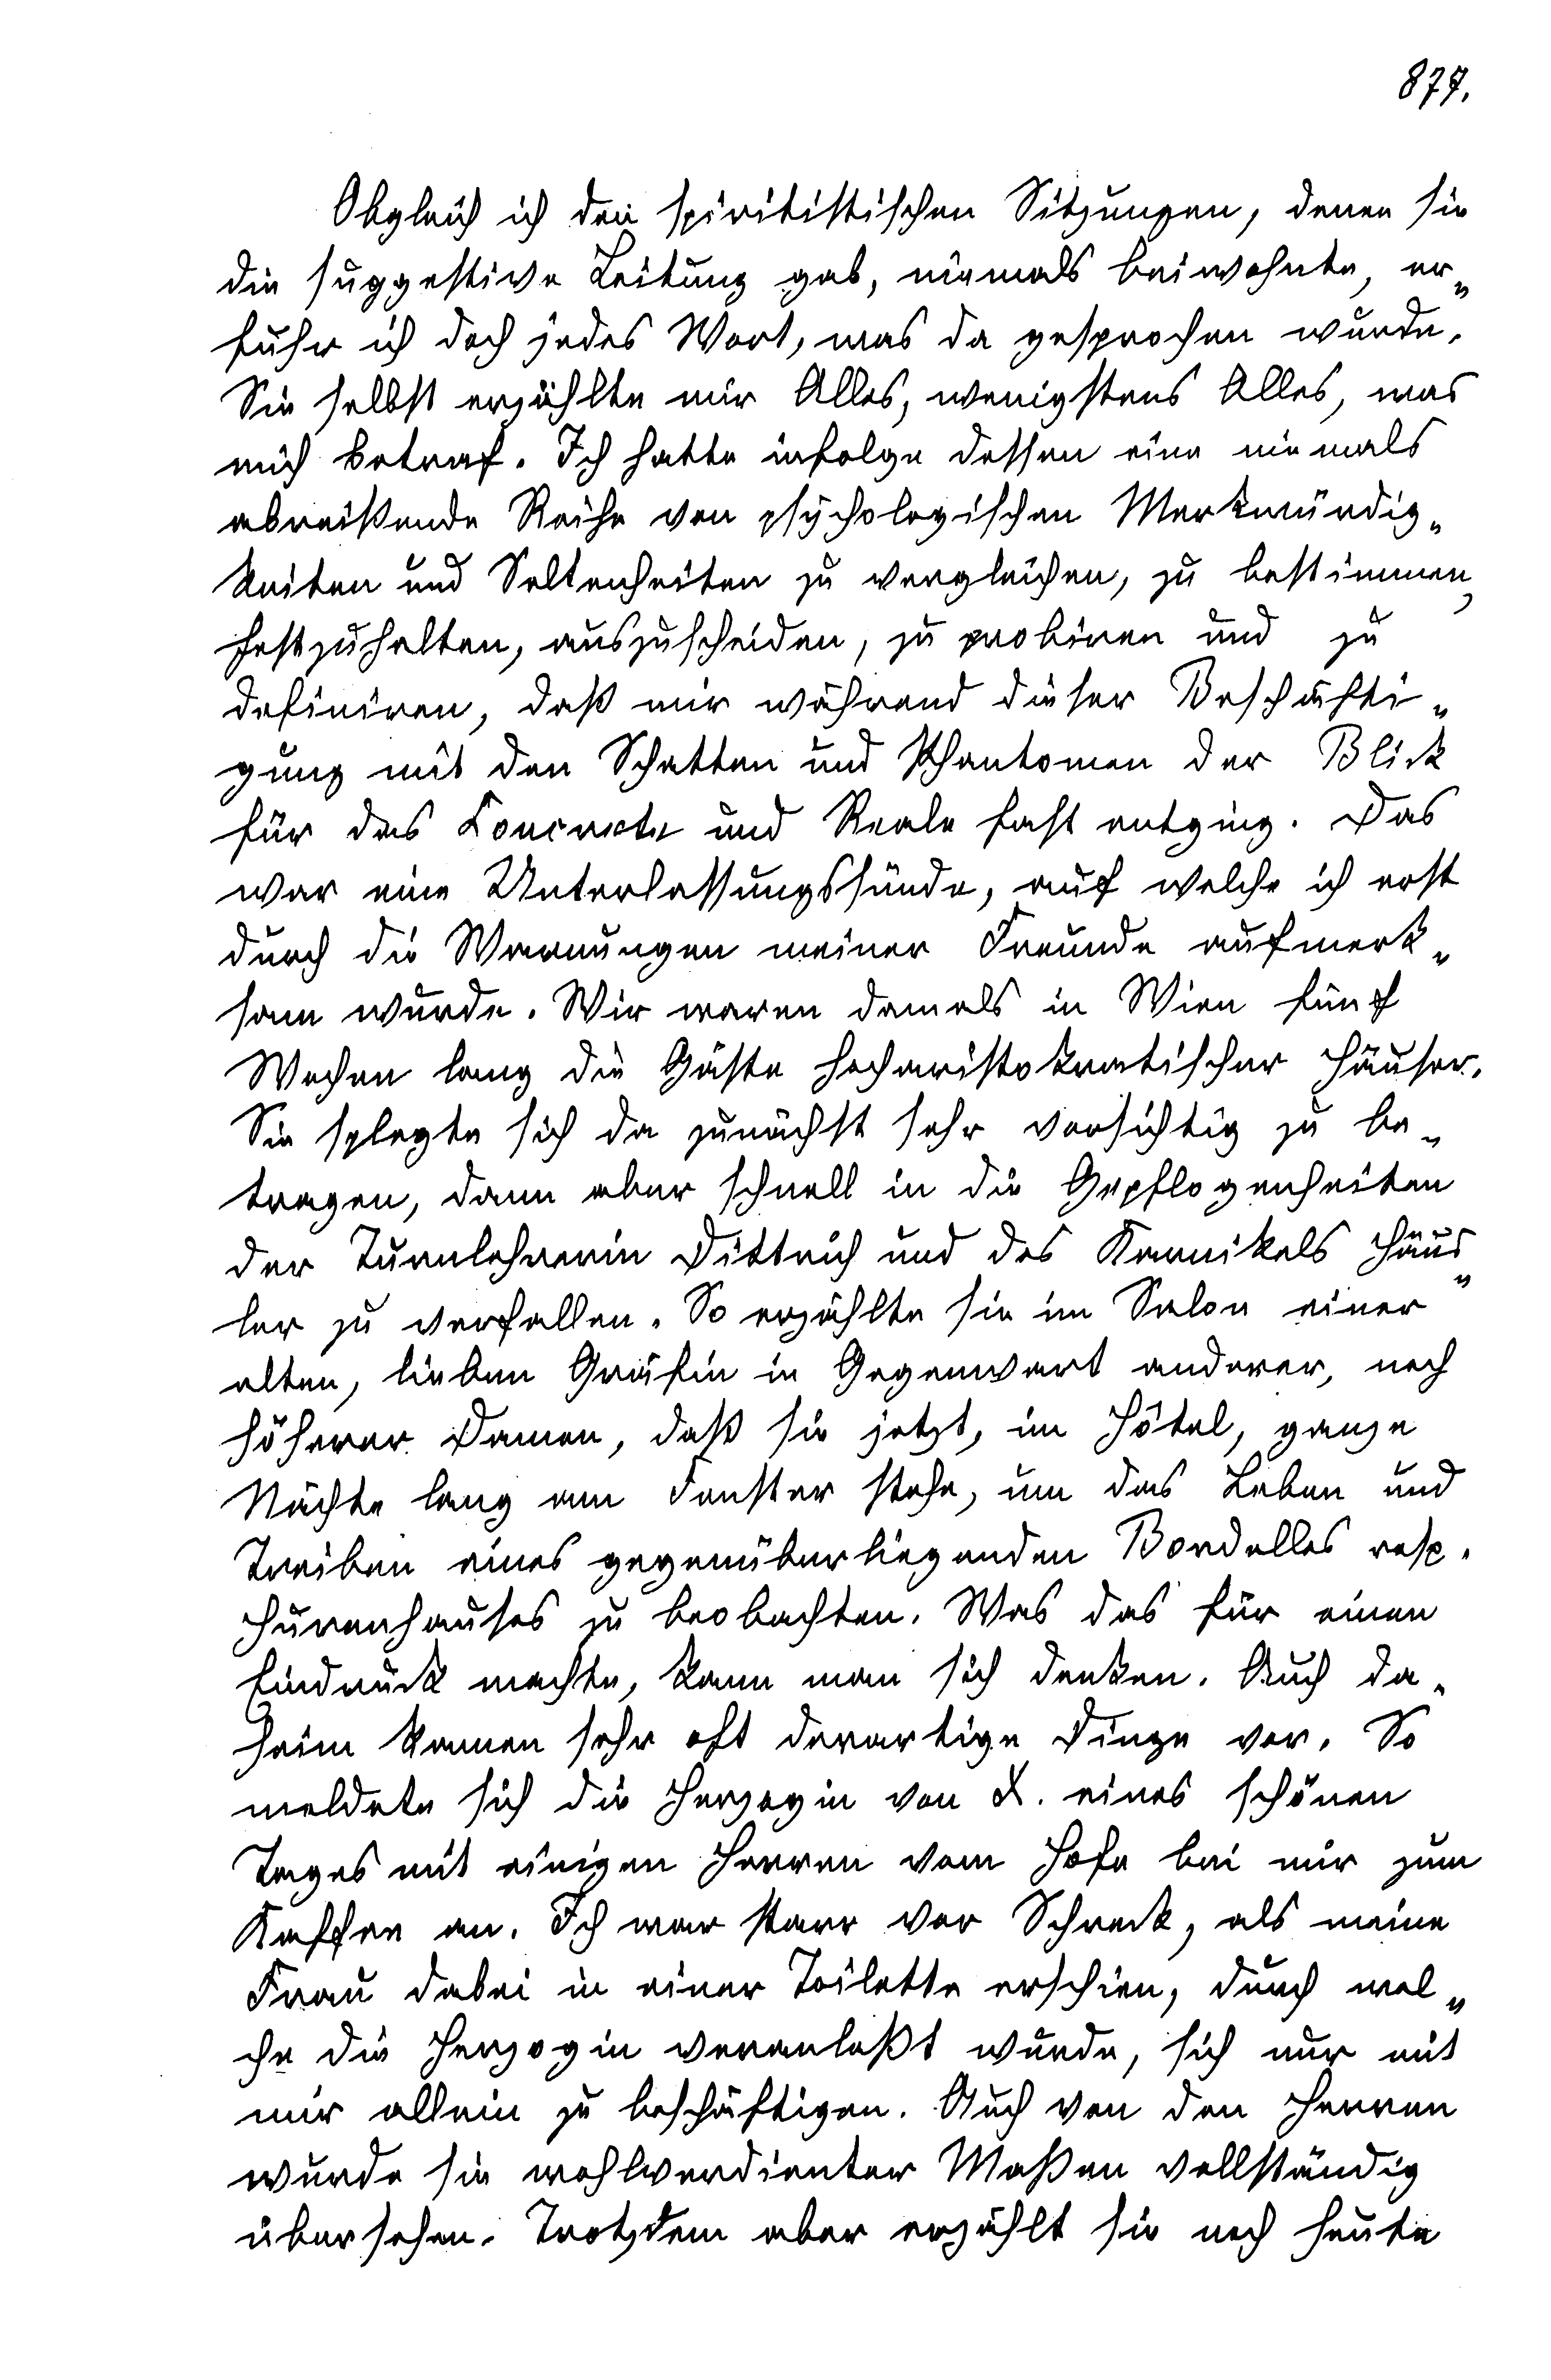 877.
Obgleich ich den spiritistischen Sitzungen, denen sie
die suggestive Leitung gab, niemals beiwohnte, er„
fuhr ich doch jedes Wort, was da gesprochen wurde.
Sie selbst erzählte mir Alles, wenigstens Alles, was
mich betraf. Ich hatte infolge dessen eine niemals
abreißende Reihe von psychologischen Merkwürdig„
keiten und Seltenheiten zu vergleichen, zu bestimmen,
festzuhalten, auszuscheiden, zu probiren und zu
definiren, daß mir während dieser Beschäfti„
gung mit den Schatten und Phantomen der Blick
für das Concrete und Reale fast entging. Das
war eine Unterlassungssünde, auf welche ich erst
durch die Warnungen meiner Freunde aufmerk„
sam wurde. Wir waren damals in Wien fünf
Wochen lang die Gäste hocharistokratischer Häuser.
Sie pflegte sich da zunächst sehr vorsichtig zu be„
tragen, dann aber schnell in die Gepflogenheiten
der Turnlehrerin Dittrich und des Karnikels Häus„
ler zu verfallen. So erzählte sie im Salon einer
alten, lieben Gräfin in Gegenwart anderer, noch
höherer Damen, daß sie jetzt, im Hôtel, ganze
Nächte lang am Fenster stehe, um das Leben und
Treiben eines gegenüberliegenden Bordelles resp.
Hurenhauses zu beobachten. Was das für einen
Eindruck machte, kann man sich denken. Auch da„
heim kamen sehr oft derartige Dinge vor. So
meldete sich die Herzogin von X. eines schönen
Tages mit einigen Herren vom Hofe bei mir zum
Kaffee an. Ich war starr vor Schreck, als meine
Frau dabei in einer Toilette erschien, durch wel„
che die Herzogin veranlaßt wurde, sich nur mit
mir allein zu beschäftigen. Auch von den Herren
wurde sie wohlverdienter Maßen vollständig
übersehen. Trotzdem aber erzählt sie noch heute